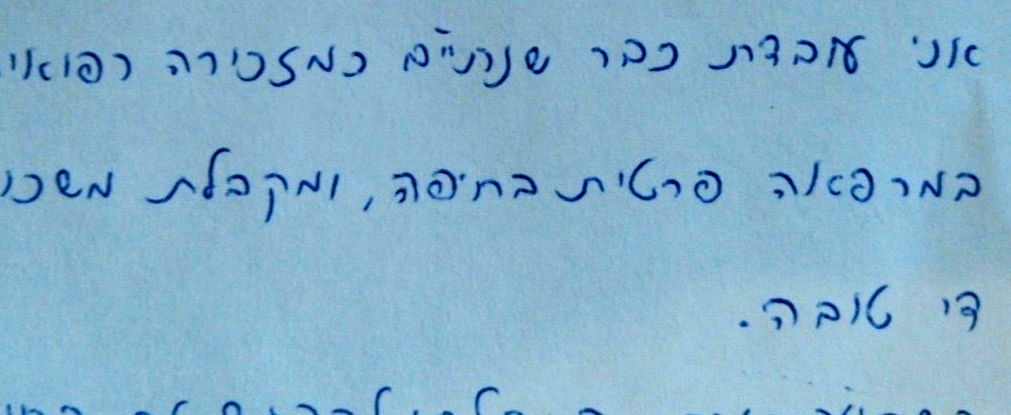 אני עובדת כבר שנתיים כמזכירה רפואי
במרפאה פרטית בחיפה, ומקבלת משכו
די טובה.